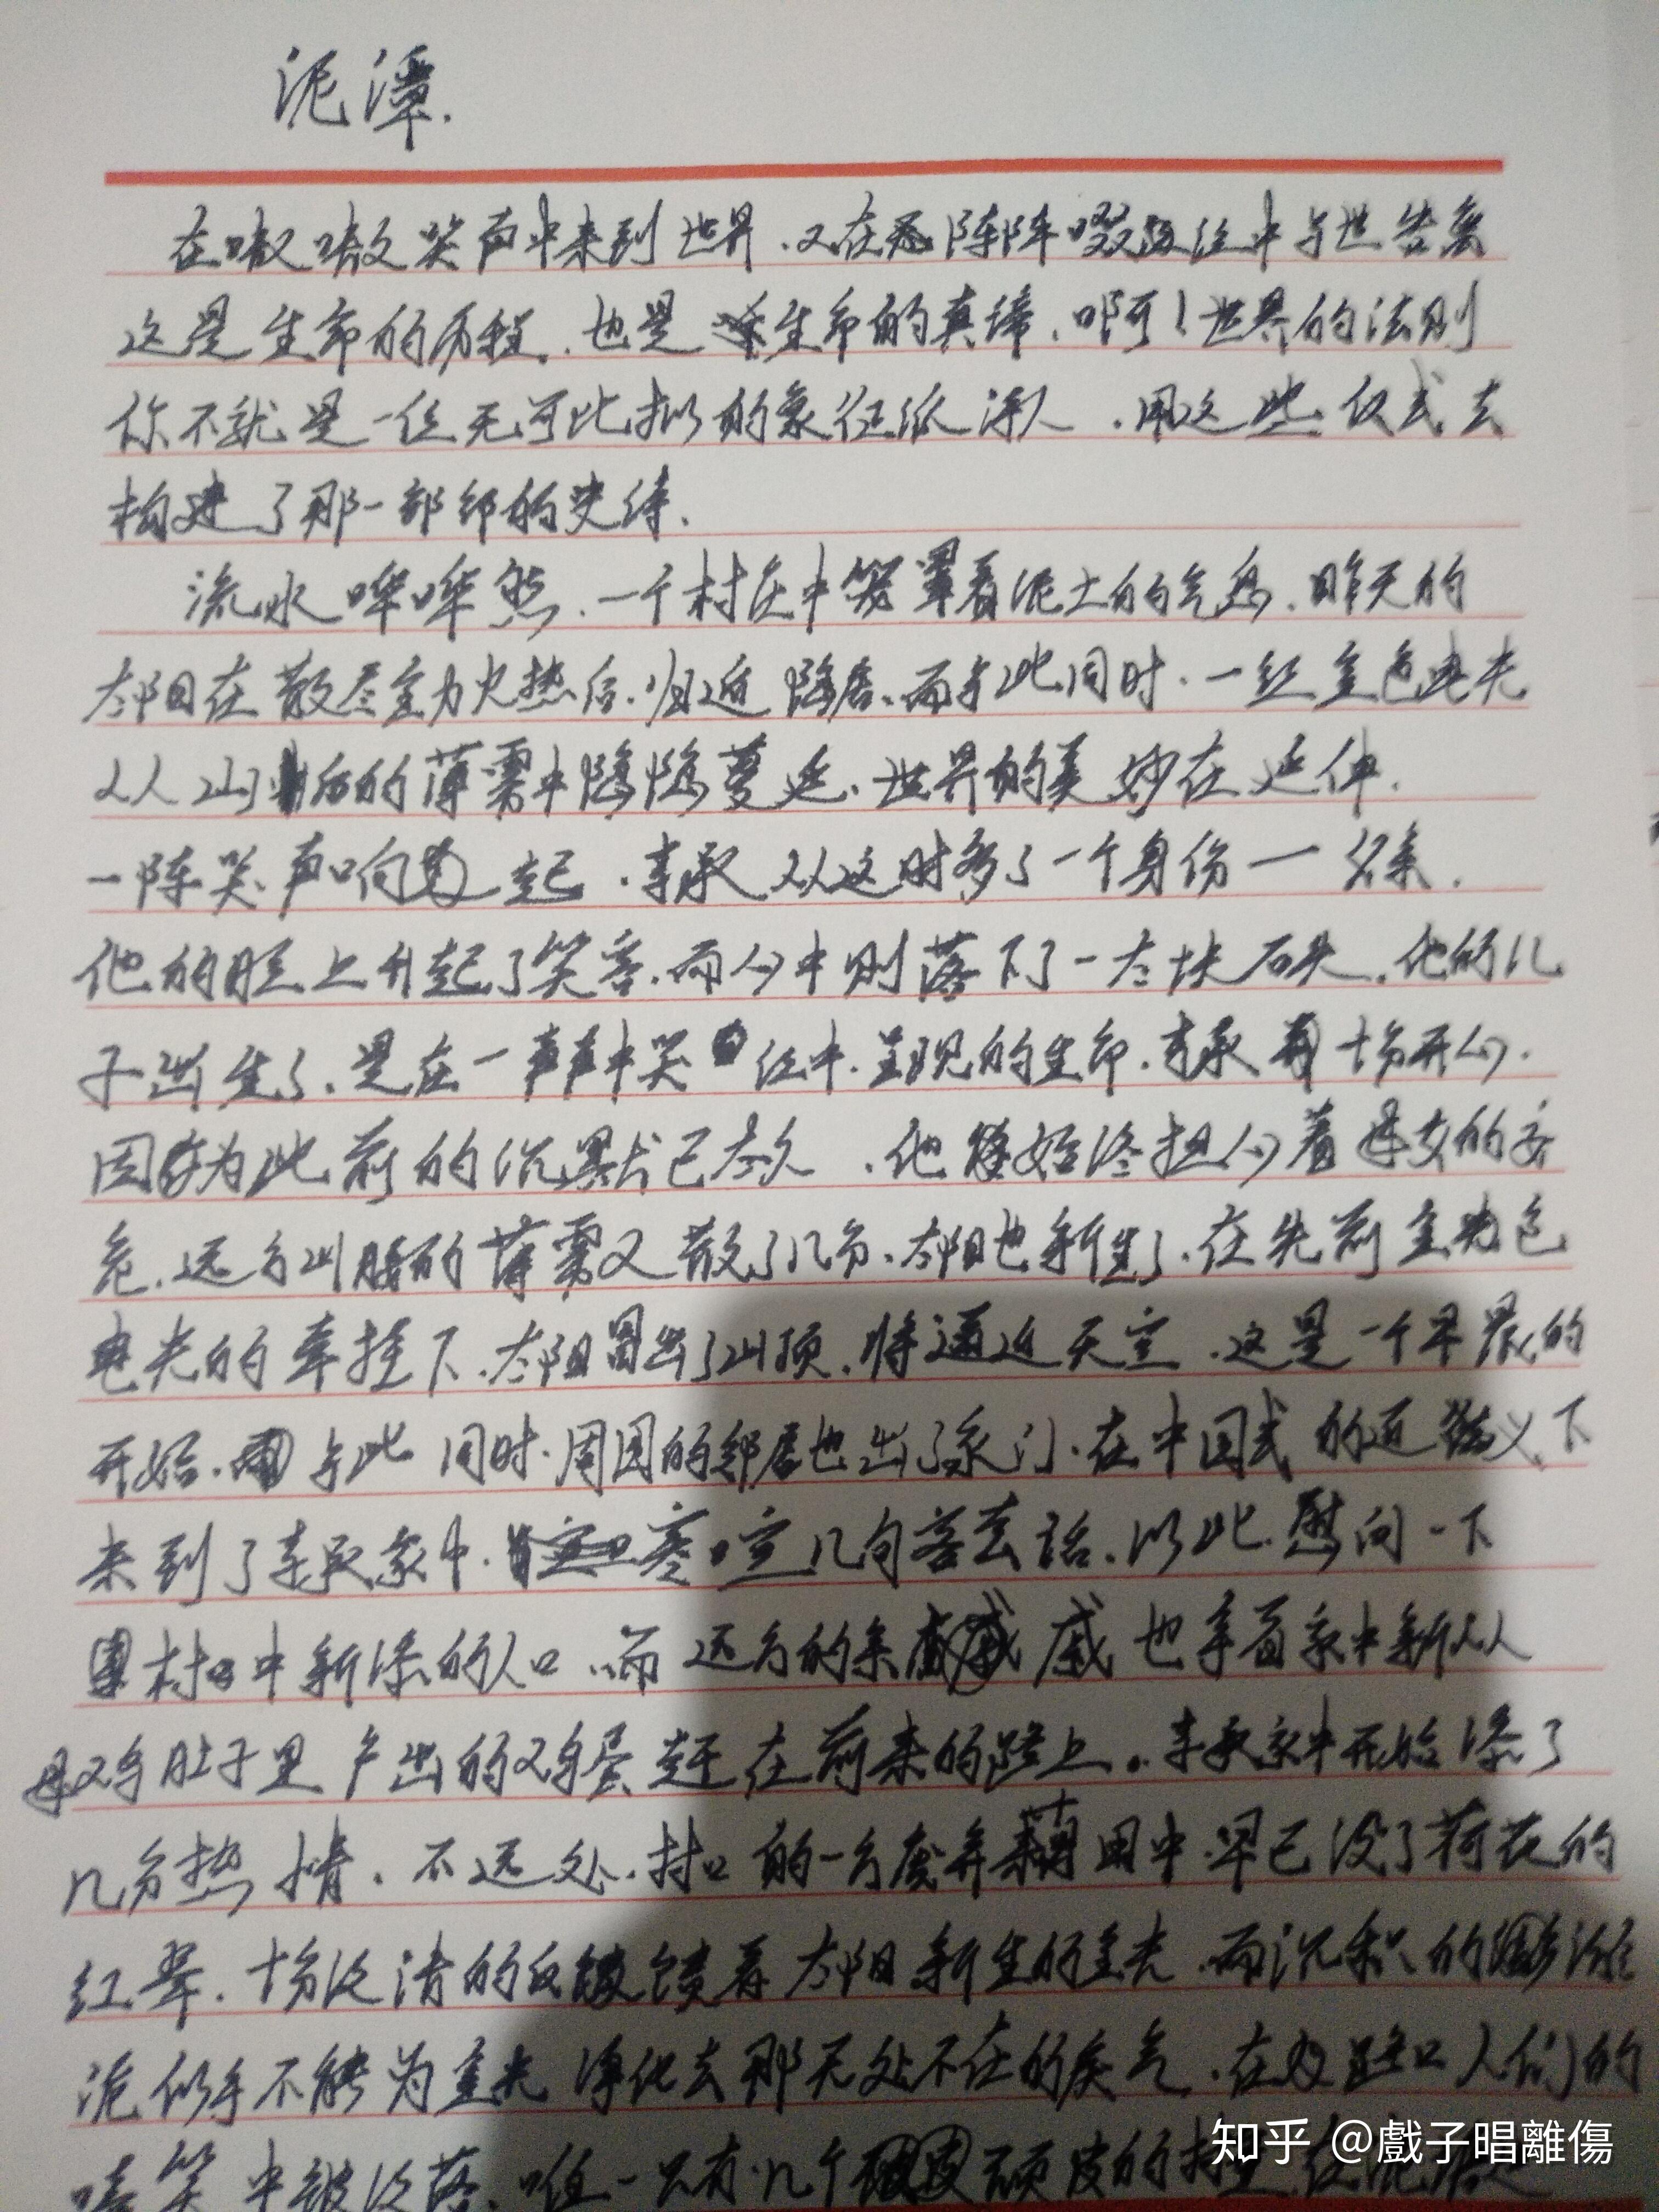 泥潭.
在嗷嗷哭声中来到世界.又在阵阵啜泣中与世告离
这是生命的历程.也是生命的真谛.啊!世界的法则
你不就是一位无可比拟的象征派诗人.用这些仪式去
构建了那一部部的史诗.
流水哗哗然.一个村庄中笼罩着泥土的气息.昨天的
太阳在散尽全力火热后.归近隐居.而与此同时.一缕金色电光
从山后的薄雾中隐隐蔓延.世界的美妙在延伸.
一阵哭声响起.李承从这时多了一个身份一父亲.
他的脸上升起了笑容.而心中则落下了一大块石头.他的儿
子出生了.是在一声声中哭中.呈现的生命.李承十分开心.
因为此前的沉默已太久.他始终担心着母女的安
危.远方山腰的薄雾又散了几分.太阳也新生了.在先前金光色
电光的牵挂下.太阳冒出了山顶.将逼近天空.这是一个早晨的
开始.与此同时.周围的邻居也出了家门.在中国式的近义下
来到了李承家中.寒暄几句客套话.以此慰问一下
村中新添的人口.而远方的亲戚也拿着家中新从
母鸡肚子里产出的鸡蛋赶在前来的路上.李承家中开始添了
几分热情.不远处.村口的一方废弃藕田中.早已没了荷花的
红晕.十分泛清的反馈着太阳新生的金光.而沉积的淤
泥似乎不能为金光净化去那无处不在的臭气.在路口人们的
嘻笑中被没落.唯一只有几个顽皮的孩
知乎 @戲子唱離傷